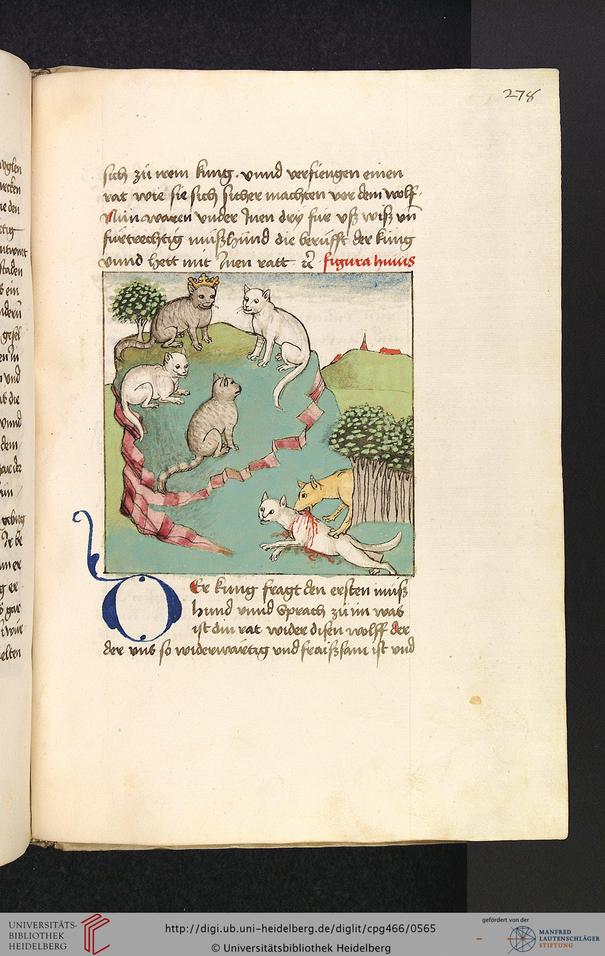 278
sich zů irem kung . vnnd verfiengen einen
rat wie sie sich sicher machten vor dem wolf .
Nůn waren vnder Inen dry fur vsz wisz vn̄
fürtrechtig muszhund die berüfft der kung
vnnd hett mit Inen ratt ꝛc figura huius
DEr kung fragt den ersten musz
hund vnnd sprach zů im was
ist din rat wider disen wolff der
der vns so widerwärtig vnd fraiszsam ist vnd
UNIVERSITÄTS-
BIBLIOTHEK
HEIDELBERG
http://digi.ub.uni-heidelberg.de/diglit/cpg466/0565
© Universitätsbibliothek Heidelberg
gefördert von der
MANFRED
LAUTENSCHLÄGER
STIFTUNG